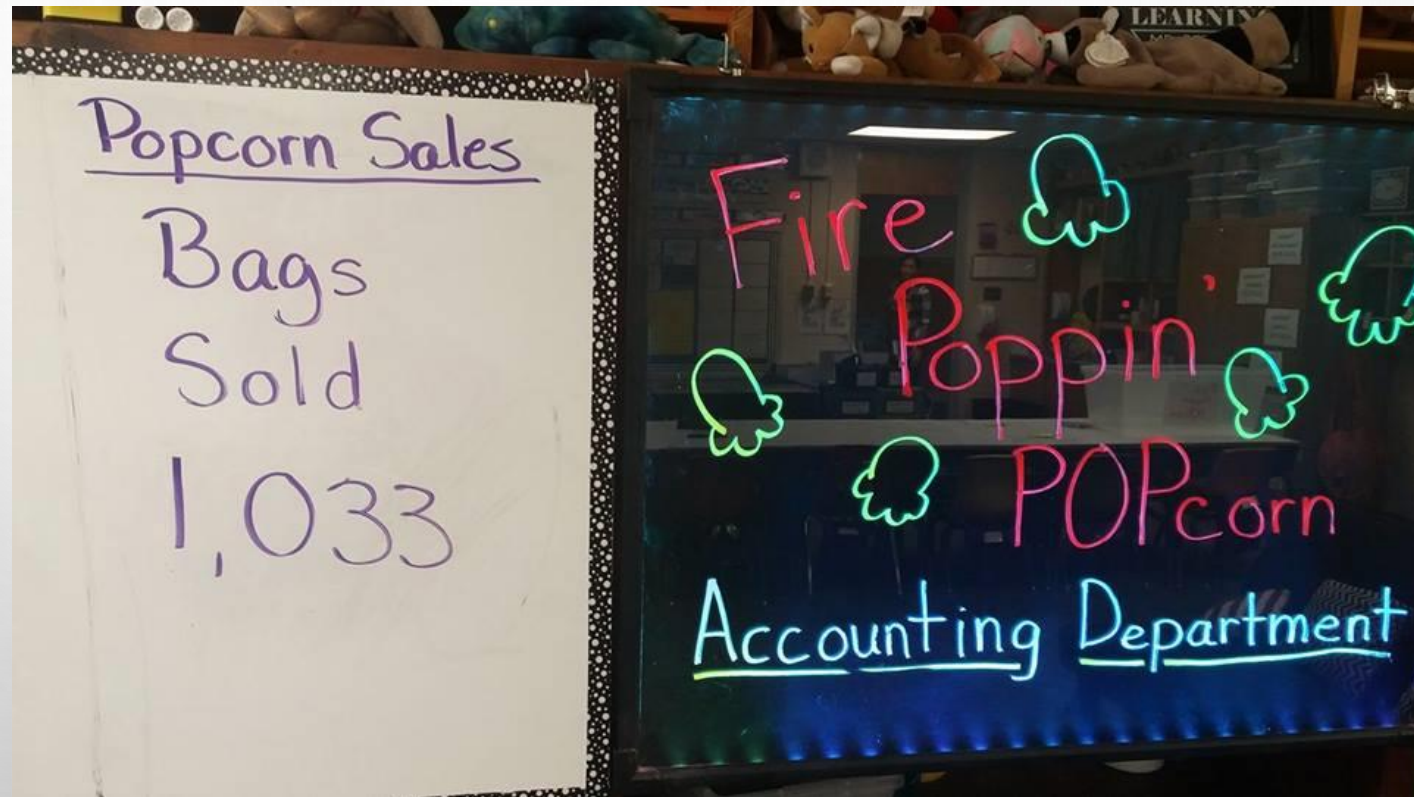 LEARNING
Popcorn Sales
Bags
Sold
1,033
Fire
Poppin'
POPcorn
Accounting Department